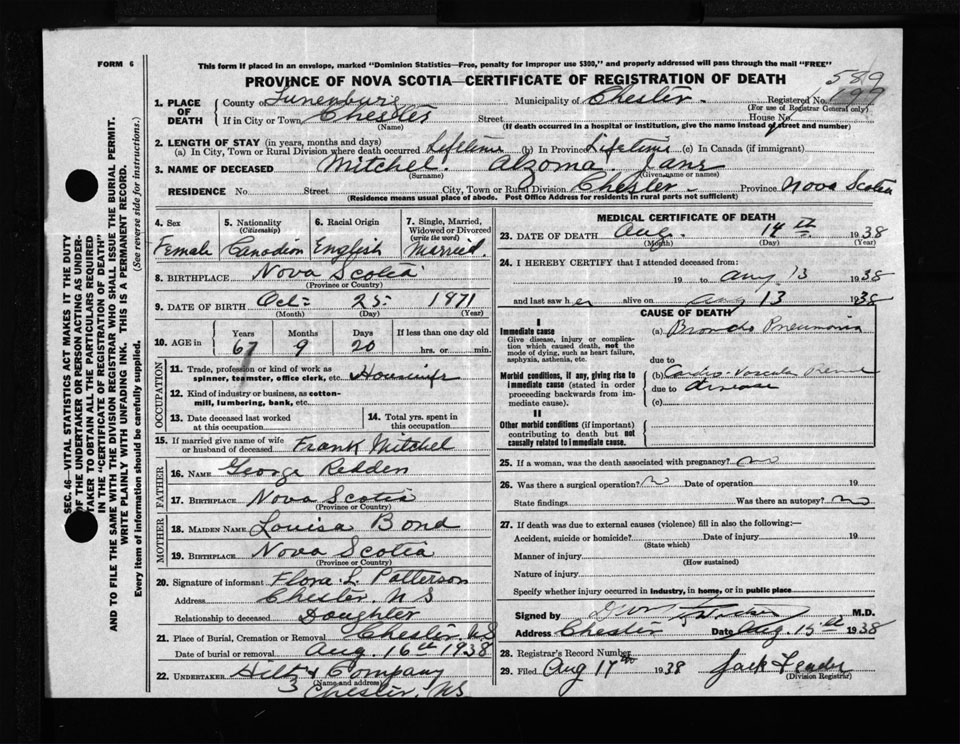 FORM 6
This form if placed in an envelope, marked "Dominion Statistics—Free, penalty for improper use $300," and properly addressed will pass through the mail "FREE"
PROVINCE OF NOVA SCOTIA—CERTIFICATE OF REGISTRATION OF DEATH
589
1. PLACE OF DEATH County of Lunenburg Municipality of Chester. Registered No. 199
(For use of Registrar General only)
If in City or Town Chester Street House No.
(Name) (If death occurred in a hospital or institution, give the name instead of street and number)
2. LENGTH OF STAY (in years, months and days)
(a) In City, Town or Rural Division where death occurred Lifetime (b) In Province Lifetime (c) In Canada (if immigrant)
3. NAME OF DECEASED Mitchel. Alzoma Jane
(Surname) (Given name or names)
RESIDENCE No. Street City, Town or Rural Division Chester - Province Nova Scotia
(Residence means usual place of abode. Post Office Address for residents in rural parts not sufficient)
4. Sex Female
5. Nationality (Citizenship) Canadian
6. Racial Origin English
7. Single, Married, Widowed or Divorced (write the word) Married.
8. BIRTHPLACE Nova Scotia
(Province or Country)
9. DATE OF BIRTH Oct- 25- 1971
(Month) (Day) (Year)
10. AGE in Years 67 Months 9 Days 20 If less than one day old hrs. or min.
OCCUPATION
11. Trade, profession or kind of work as spinner, teamster, office clerk, etc. Housewife
12. Kind of industry or business, as cotton-mill, lumbering, bank, etc.
13. Date deceased last worked at this occupation
14. Total yrs. spent in this occupation
15. If married give name of wife or husband of deceased Frank Mitchel
FATHER
16. NAME George Redden
17. BIRTHPLACE Nova Scotia
(Province or Country)
MOTHER
18. MAIDEN NAME Louisa Bond
19. BIRTHPLACE Nova Scotia
(Province or Country)
20. Signature of informant Flora L. Patterson
Address Chester N S
Relationship to deceased Daughter
21. Place of Burial, Cremation or Removal Chester. N S
Date of burial or removal Aug. 16th 1938
22. UNDERTAKER Hiltz & Company
(Name and address)
Chester, N S
MEDICAL CERTIFICATE OF DEATH
23. DATE OF DEATH Aug. 14th 1938
(Month) (Day) (Year)
24. I HEREBY CERTIFY that I attended deceased from:
19 to Aug 13 1938
and last saw her alive on Aug 13 1938
CAUSE OF DEATH
I
Immediate cause
Give disease, injury or complication which caused death, not the mode of dying, such as heart failure, asphyxia, asthenia, etc.
(a) Broncho Pneumonia
due to
Morbid conditions, if any, giving rise to immediate cause (stated in order proceeding backwards from immediate cause).
(b) Cardio-Vascular
due to disease
(c)
II
Other morbid conditions (if important) contributing to death but not causally related to immediate cause.
25. If a woman, was the death associated with pregnancy? no
26. Was there a surgical operation? no Date of operation 19
State findings Was there an autopsy? no
27. If death was due to external causes (violence) fill in also the following:—
Accident, suicide or homicide? Date of injury 19
(State which)
Manner of injury
(How sustained)
Nature of injury
Specify whether injury occurred in industry, in home, or in public place
Signed by M.D.
Address Chester Date Aug. 15th 1938
28. Registrar's Record Number
29. Filed Aug 17th 1938 Jack
(Division Registrar)
SEC. 46—VITAL STATISTICS ACT MAKES IT THE DUTY OF THE UNDERTAKER OR PERSON ACTING AS UNDERTAKER TO OBTAIN ALL THE PARTICULARS REQUIRED IN THE "CERTIFICATE OF REGISTRATION OF DEATH" AND TO FILE THE SAME WITH THE DIVISION REGISTRAR WHO SHALL ISSUE THE BURIAL PERMIT.
WRITE PLAINLY WITH UNFADING INK. THIS IS A PERMANENT RECORD.
Every item of information should be carefully supplied. (See reverse side for instructions.)